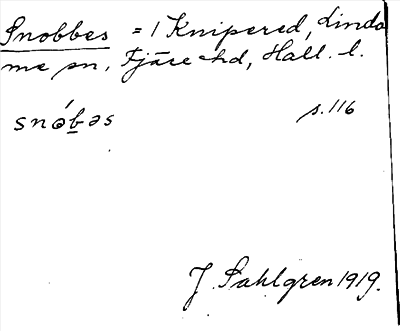 Snobbes = 1 Knipered, Lindo
me sn, Fjäre hd, Hall. l.
snǿb̲əs s. 116
J. Sahlgren 1919.